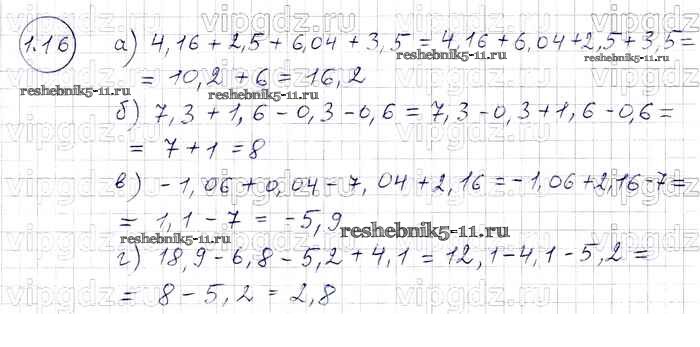 1.16 а) 4,16 + 2,5 + 6,04 + 3,5 = 4,16 + 6,04 + 2,5 + 3,5 =
= 10,2 + 6 = 16,2
б) 7,3 + 1,6 - 0,3 - 0,6 = 7,3 - 0,3 + 1,6 - 0,6 =
= 7 + 1 = 8
в) - 1,06 + 0,04 - 7,04 + 2,16 = - 1,06 + 2,16 - 7 =
= 1,1 - 7 = - 5,9
г) 18,9 - 6,8 - 5,2 + 4,1 = 12,1 - 4,1 - 5,2 =
= 8 - 5,2 = 2,8
vipgdz.ru
reshebnik5-11.ru